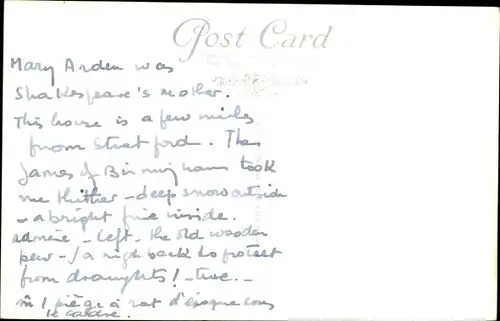 Post Card
Mary Arden was
Shakespeare's mother.
This house is a few miles
from Stratford. The
James of Birmingham took
me thither – deep snow outside
– a bright fire inside.
admire – left – the old wooden
pew – / a high back to protect
from draughts! – true. –
1 piège à rat d'époque sous
le cadre.